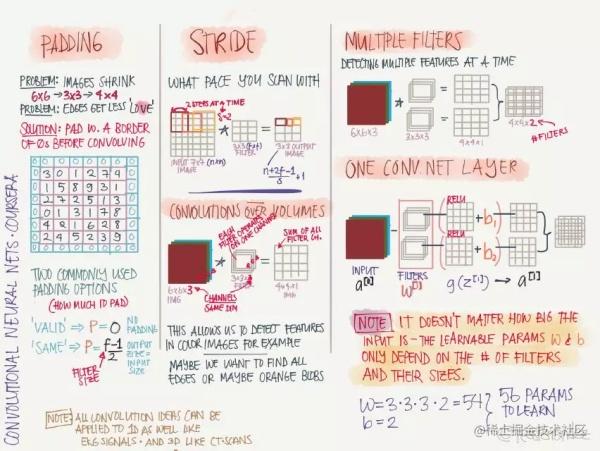 CONVOLUTIONAL NEURAL NETS: COURSERA
PADDING
PROBLEM: IMAGES SHRINK
6x6 → 3x3 → 4x4
PROBLEM: EDGES GET LESS 'LOVE'
SOLUTION: PAD W. A BORDER
OF 0s BEFORE CONVOLVING
0 0 0 0 0 0 0 0
0 3 0 1 2 7 4 0
0 1 5 8 9 3 1 0
0 2 7 2 5 1 3 0
0 0 1 3 1 7 8 0
0 4 2 1 6 2 8 0
0 2 4 5 2 3 9 0
0 0 0 0 0 0 0 0
TWO COMMONLY USED
PADDING OPTIONS
(HOW MUCH TO PAD)
'VALID' ⇒ P=0 NO PADDING
'SAME' ⇒ P= f-1/2 OUTPUT SIZE = INPUT SIZE
FILTER SIZE
NOTE: ALL CONVOLUTION IDEAS CAN BE
APPLIED TO 1D AS WELL LIKE
EKG SIGNALS · AND 3D LIKE CT-SCANS
STRIDE
WHAT PACE YOU SCAN WITH
2 STEPS AT A TIME
S=2
*
=
INPUT 7x7 (n×n)
IMAGE
3x3 (f×f)
FILTER
3x3 OUTPUT
IMAGE
n+2f-1/S +1
CONVOLUTIONS OVER VOLUMES
EACH FILTER OPERATES ON ONE CHANNEL
SUM OF ALL
FILTER CH.
*
=
6x6x3
IMG
3x3x3
FILTER
4x4x1
IMG
CHANNELS
SAME DIM
THIS ALLOWS US TO DETECT FEATURES
IN COLOR IMAGES FOR EXAMPLE
MAYBE WE WANT TO FIND ALL
EDGES OR MAYBE ORANGE BLOBS
MULTIPLE FILTERS
DETECTING MULTIPLE FEATURES AT A TIME
*
=
=
6x6x3
3x3x3
4x4x1
4x4x2
#FILTERS
ONE CONV. NET LAYER
RELU
+ b₁
RELU
+ b₂
INPUT
a[0]
FILTERS
W[1]
g(z[1]) → a[1]
NOTE IT DOESN'T MATTER HOW BIG THE
INPUT IS - THE LEARNABLE PARAMS W & b
ONLY DEPEND ON THE # OF FILTERS
AND THEIR SIZES.
W=3·3·3·2=54
b=2
56 PARAMS
TO LEARN
@稀土掘金技术社区